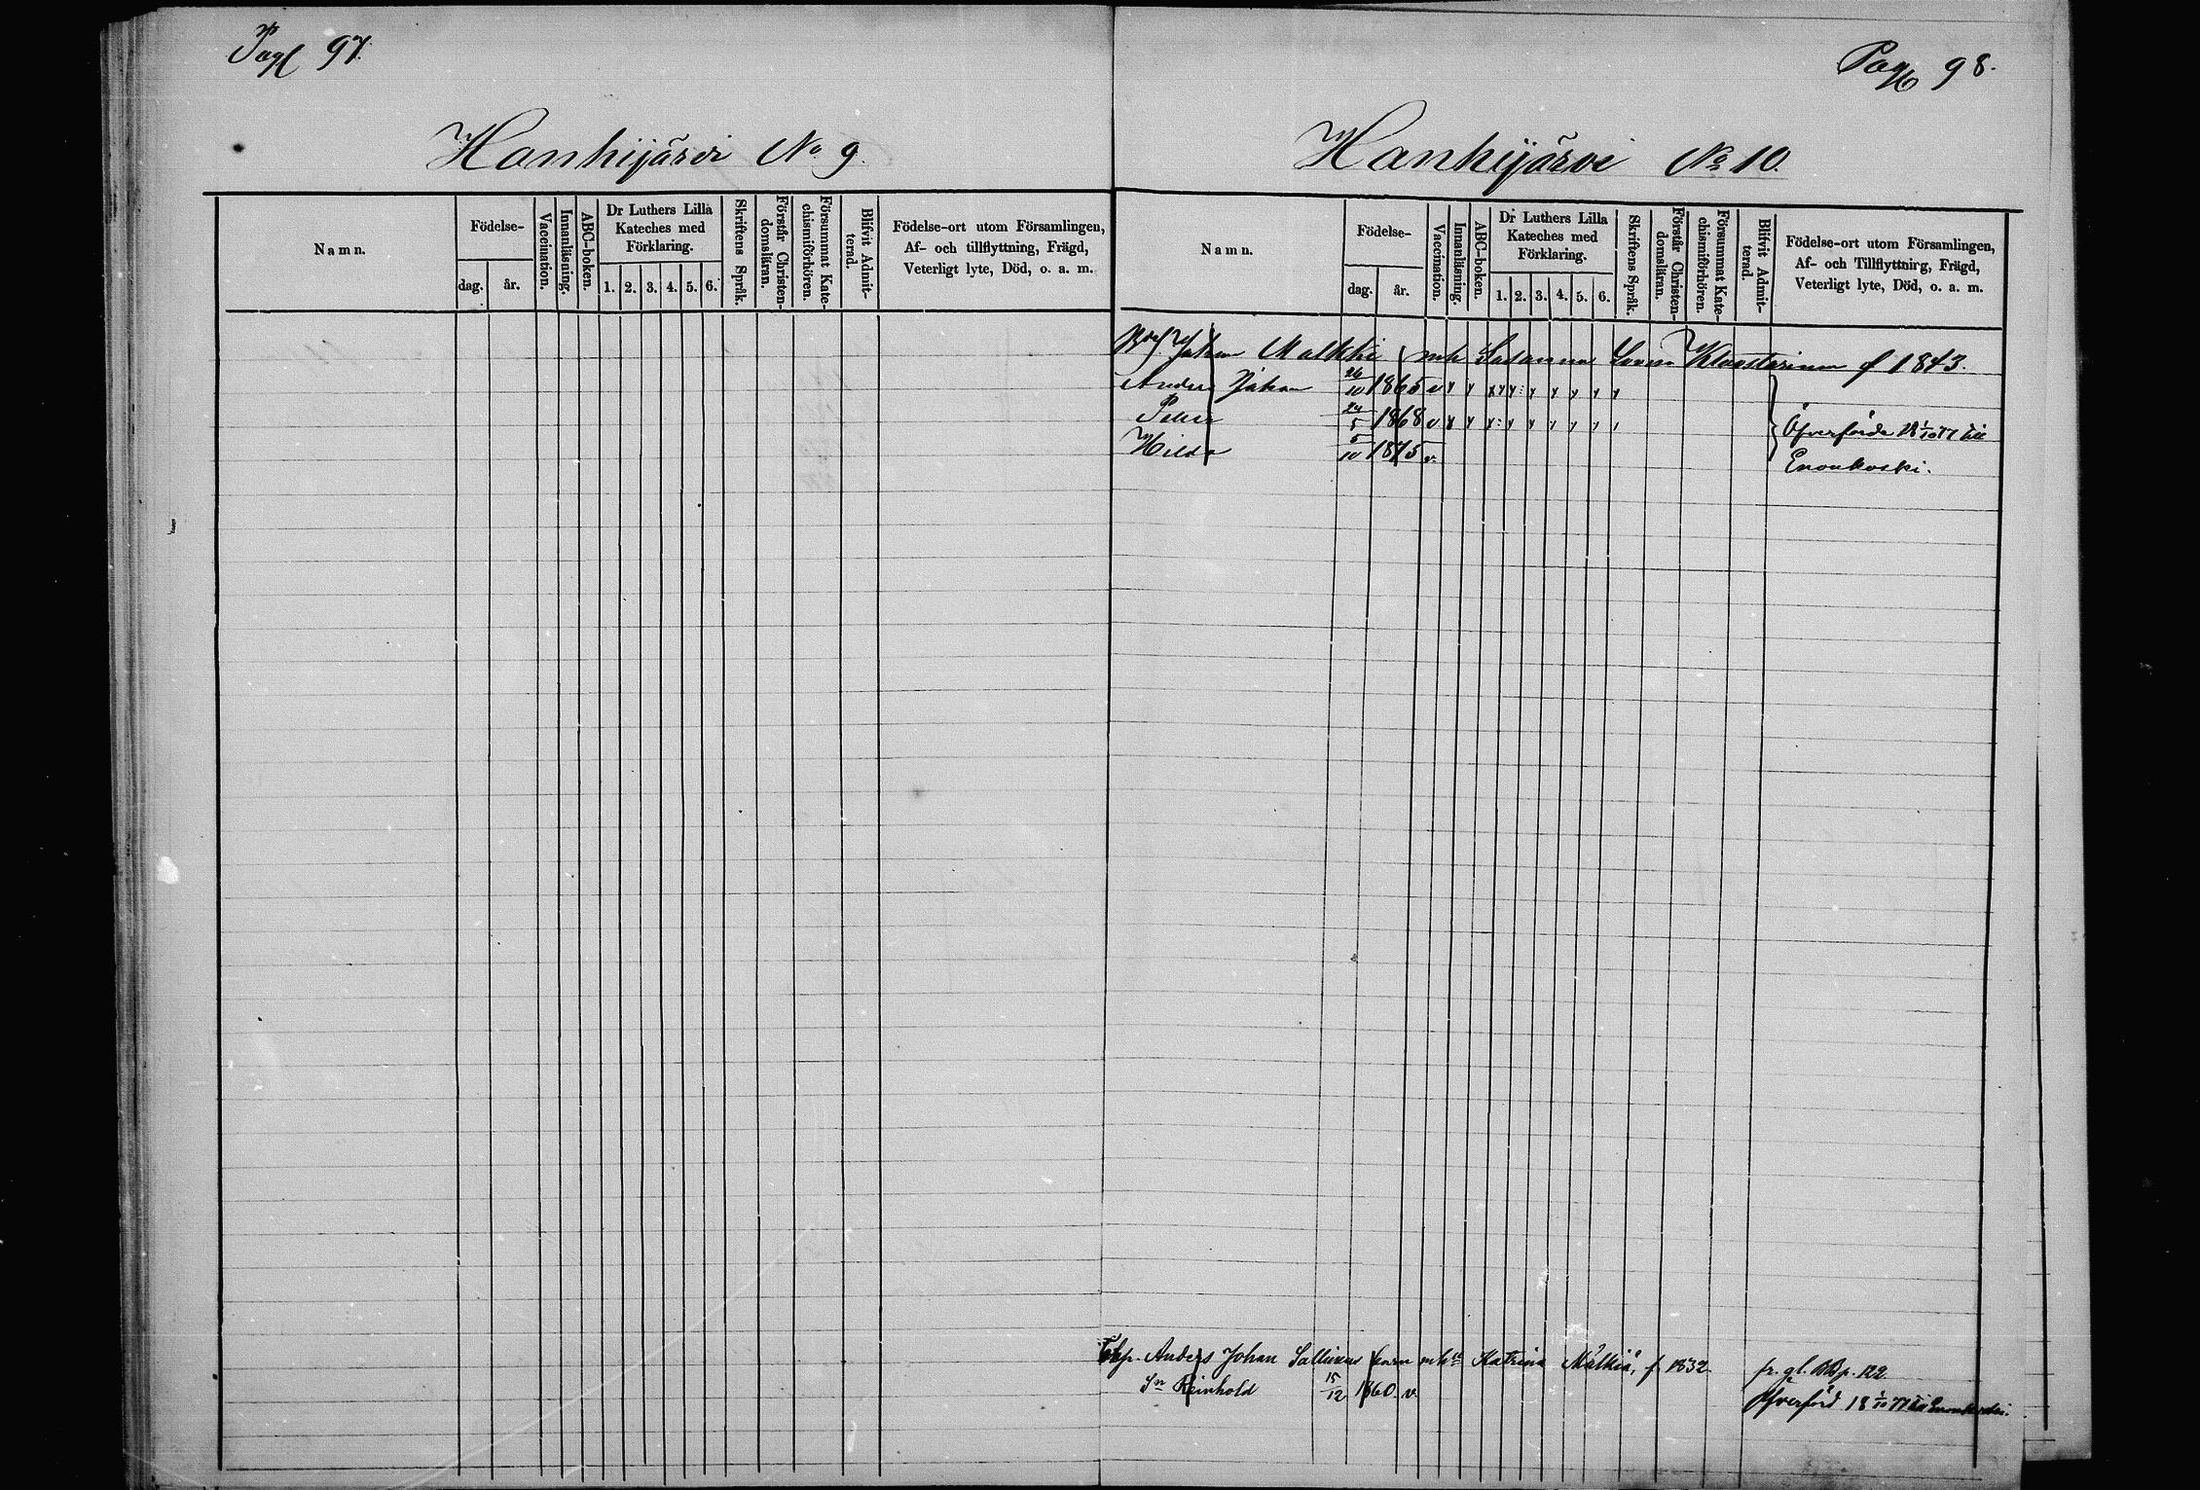 Pag 97.
Hanhijärvi No 9.
Namn.
Födelse-
dag. år.
Vaccination.
Innanläsning.
ABC-boken.
Dr Luthers Lilla
Kateches med
Förklaring.
1. 2. 3. 4. 5. 6.
Skriftens Språk.
Förstår Christen-
domsläran.
Försummat Kate-
chismiförhören.
Blifvit Admit-
terad.
Födelse-ort utom Församlingen,
Af- och tillflyttning, Frägd,
Veterligt lyte, Död, o. a. m.
Pag 98.
Hanhijärvi No 10.
Namn.
Födelse-
dag. år.
Vaccination.
Innanläsning.
ABC-boken.
Dr Luthers Lilla
Kateches med
Förklaring.
1. 2. 3. 4. 5. 6.
Skriftens Språk.
Förstår Christen-
domsläran.
Försummat Kate-
chismiförhören.
Blifvit Admit-
terad.
Födelse-ort utom Församlingen,
Af- och Tillflyttnirg, Frägd,
Veterligt lyte, Död, o. a. m.
Johan Malkki enk Susanna f 1843.
Anders Johan 26/10 1865 v
Petter 24/5 1868 v
Hilda 5/10 1875 v.
Öfverförde 18 1/10 77 till
Enonkoski.
Anders Johan Sallinens Katrina Malkiä, f 1832. fr. gl. BB p. 122
Sn Reinhold 15/12 1860. v.
Öfverförd 18 1/10 77 till Enonkoski.